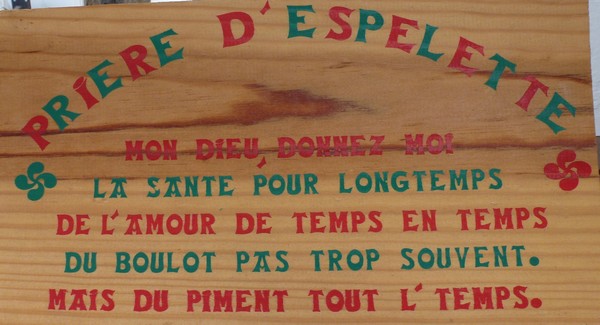 PRIERE D'ESPELETTE
MON DIEU, DONNEZ MOI
LA SANTE POUR LONGTEMPS
DE L'AMOUR DE TEMPS EN TEMPS
DU BOULOT PAS TROP SOUVENT.
MAIS DU PIMENT TOUT L'TEMPS.